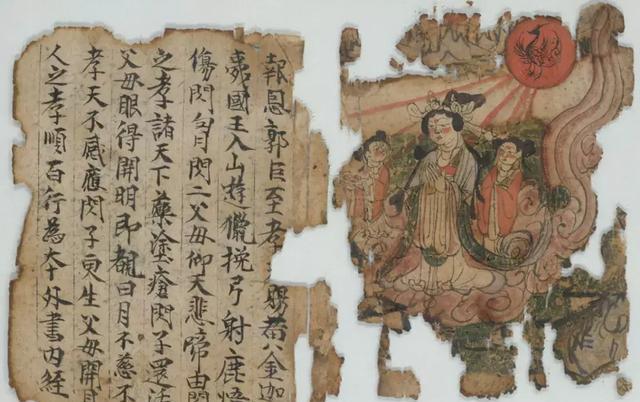 報恩郭巨至孝賜黃金迦
夷國王入山遊獵挽弓射鹿悮
傷閃匂閃二父母仰天悲啼由閃
之孝諸天下藥塗瘡閃子還活
父母眼得開明即覩日月不慈不
孝天不感應閃子更生父母開目
人之孝順百行為本外書內經